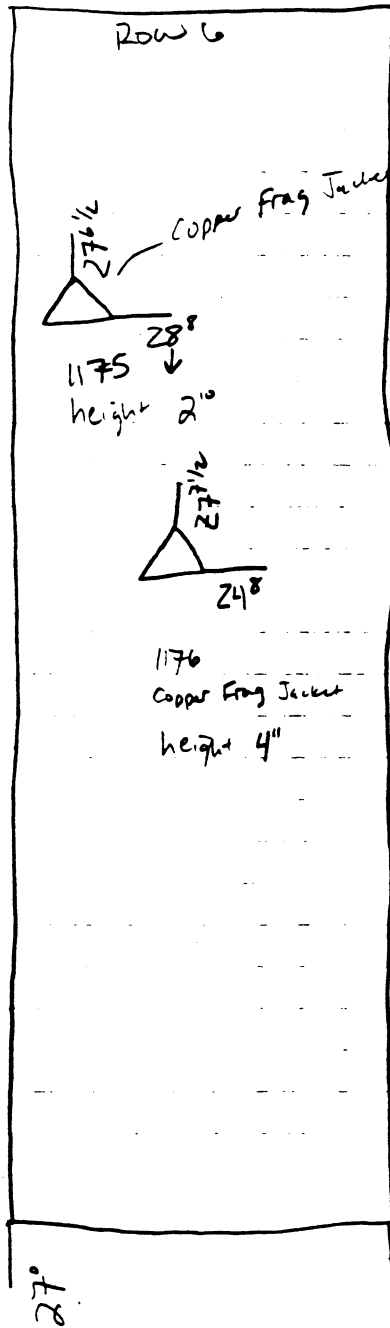 Row 6
27 6 1/2
Copper Frag Jacket
28 8
1175
height 2 10
27 7 1/2
24 8
1176
Copper Frag Jacket
height 4"
27°